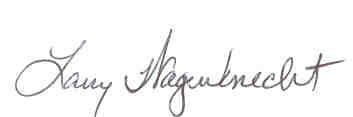 Larry Wagenknecht